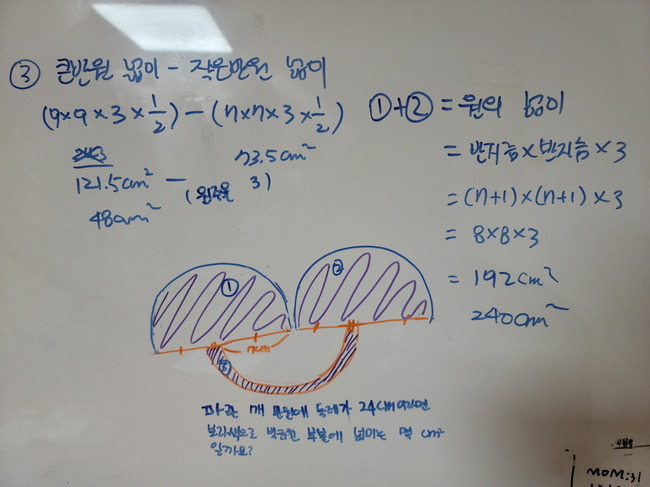 ③ 큰반원 넓이 - 작은반원 넓이
(9×9×3×1/2) - (7×7×3×1/2)
121.5cm² - 73.5cm²
(원주율 3)
48cm²
①+② = 원의 넓이
= 반지름×반지름×3
= (7+1)×(7+1)×3
= 8×8×3
= 192cm²
240cm²
①
②
7cm
③
파란 매 반원에 둘레가 24cm이라면
보라색으로 색칠된 부분에 넓이는 몇 cm²
일까요?
MOM:31